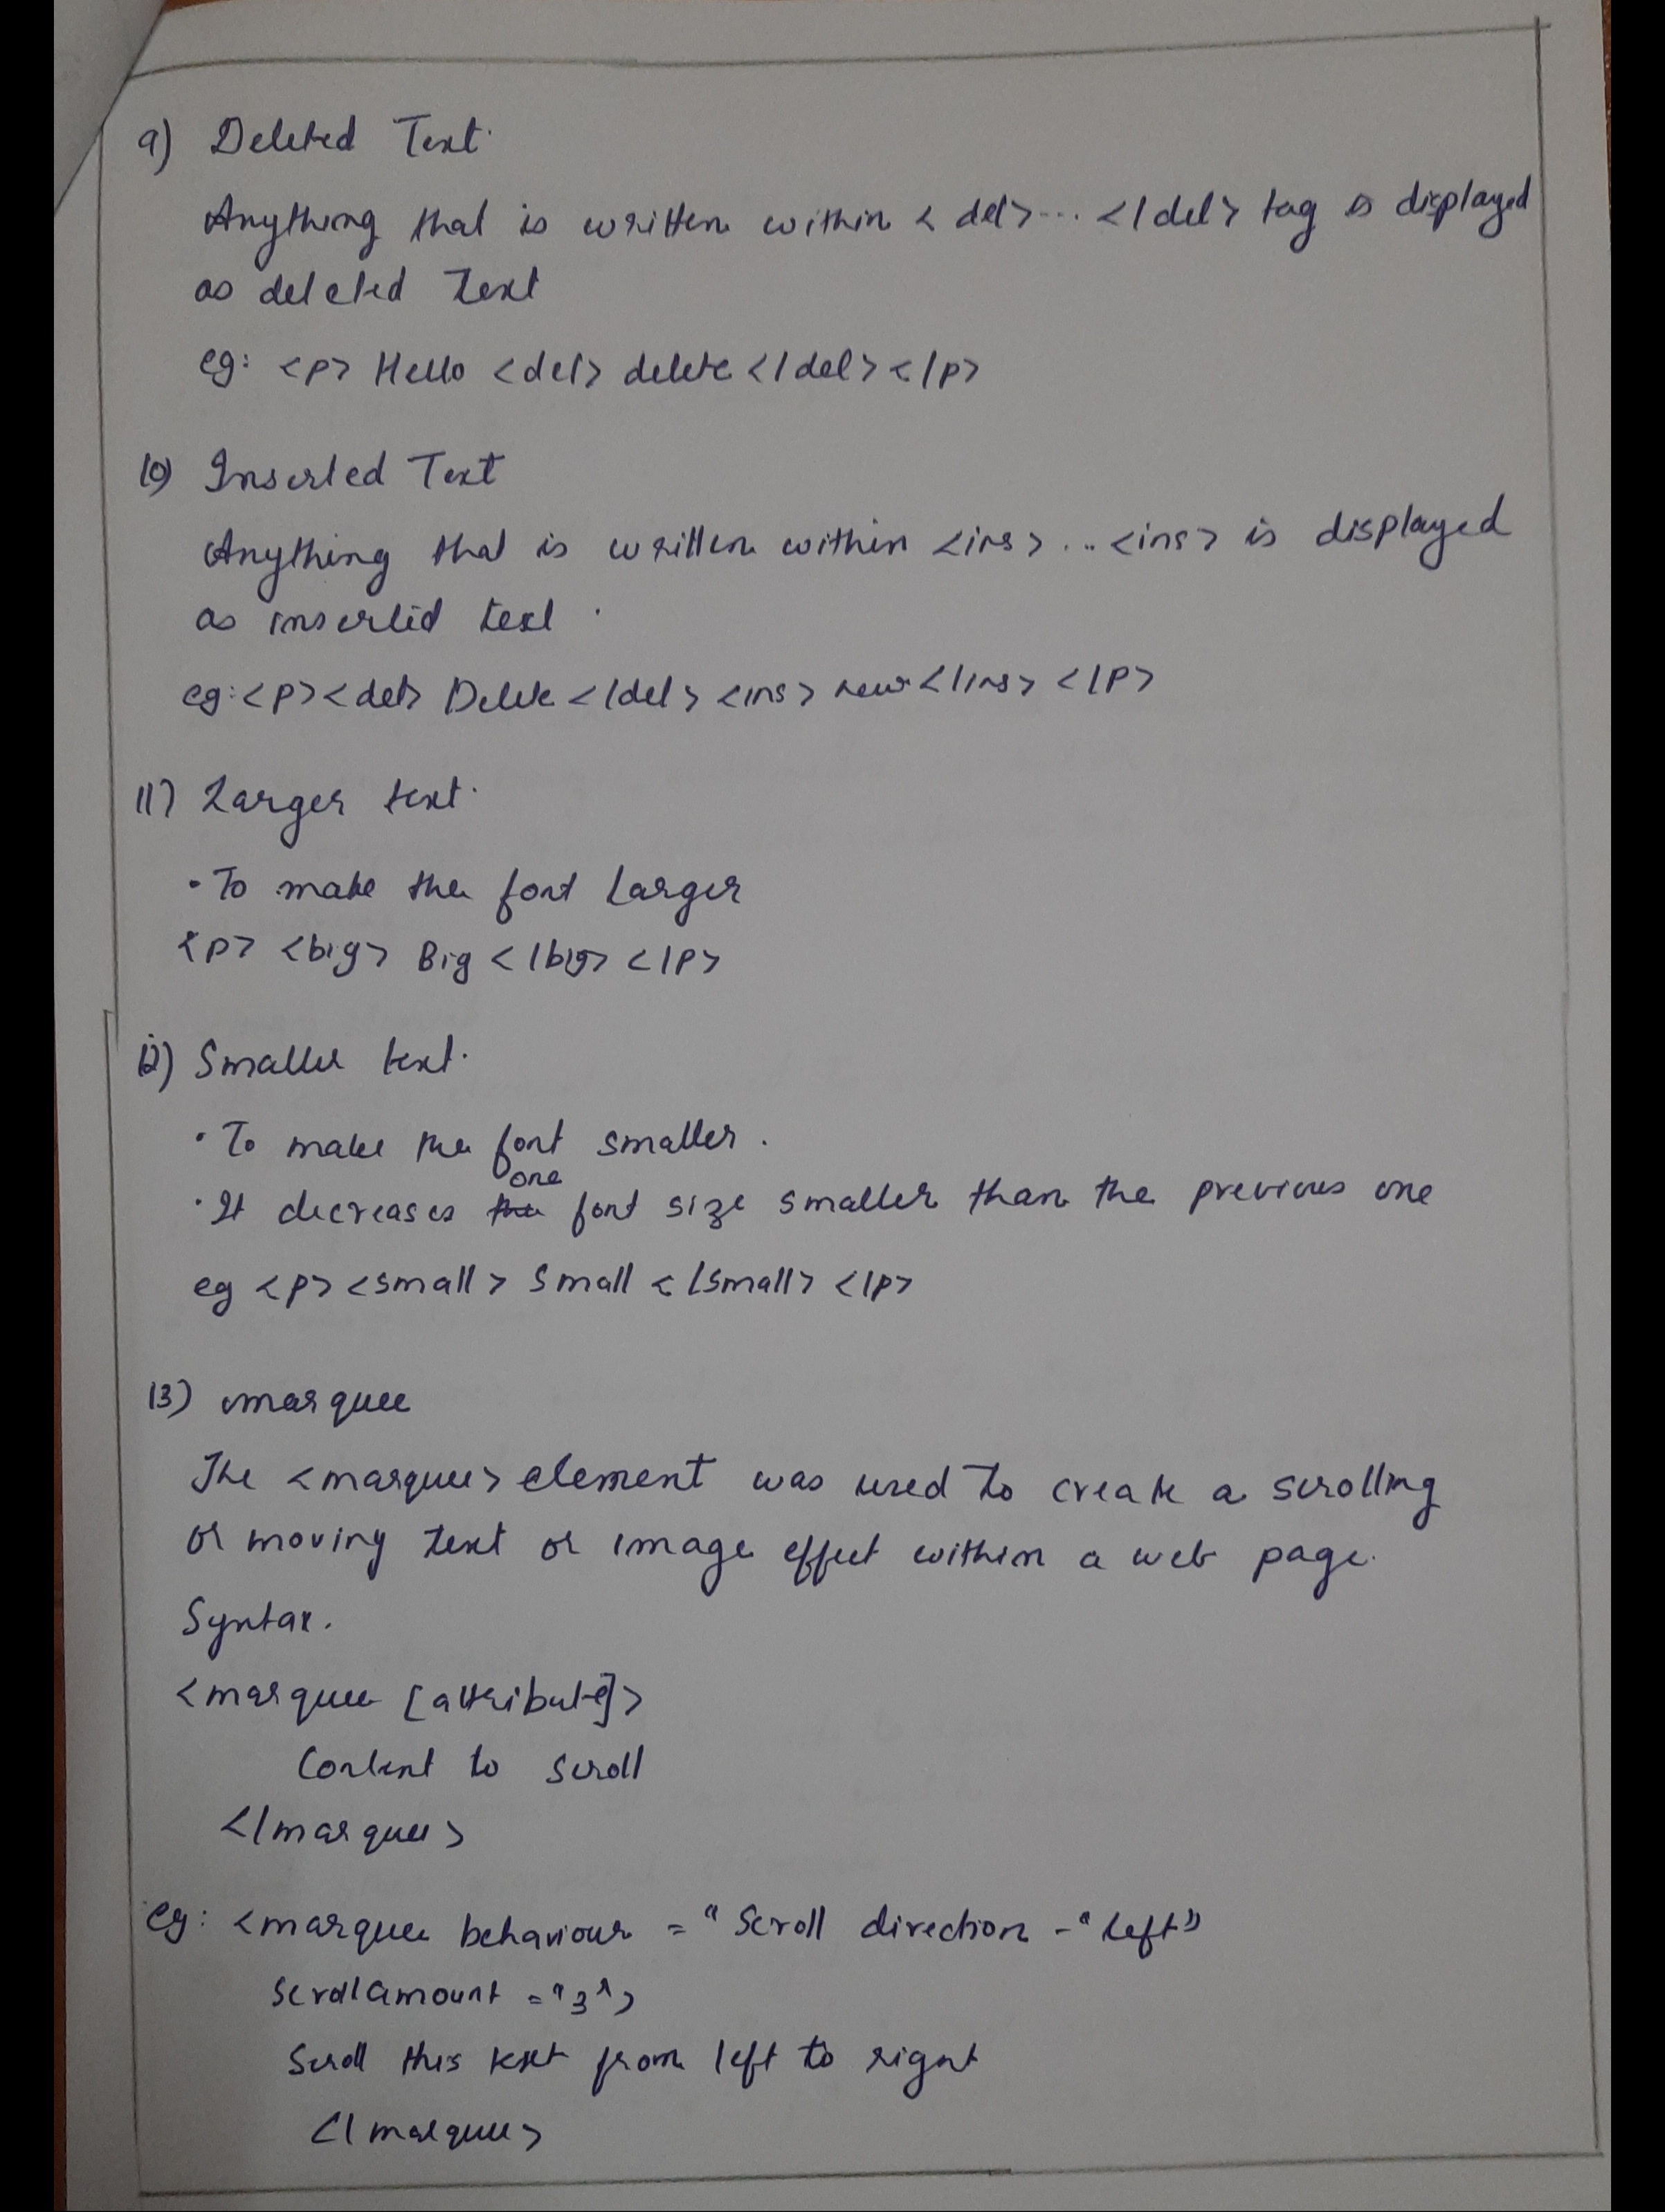 9) Deleted Text.
Anything that is written within <del>... </del> tag is displayed
as deleted text
eg: <p> Hello <del> delete </del> </p>
10) Inserted Text
Anything that is written within <ins> ... <ins> is displayed
as inserted text.
eg: <p> <del> Delete </del> <ins> new </ins> </p>
11) Larger text.
• To make the font larger
<p> <big> Big </big> </p>
12) Smaller text.
• To make the font smaller.
• It decreases one font size smaller than the previous one
eg <p> <small> Small </small> </p>
13) marquee
The <marquee> element was used to create a scrolling
or moving text or image effect within a web page.
Syntax.
<marquee [attribute]>
Content to scroll
</marquee>
eg: <marquee behaviour = "Scroll direction - "left"
scrollamount = "3">
Scroll this text from left to right
</marquee>